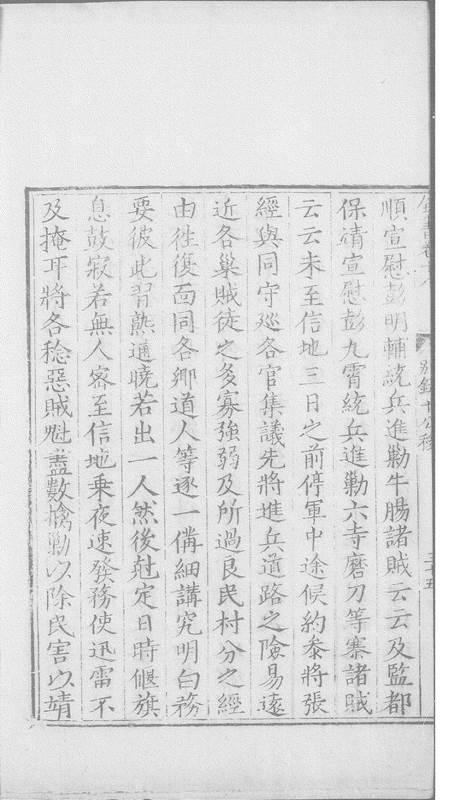 別錄十公移
三十五
順宣慰彭明輔統兵進勦牛腸諸賊云云及監都
保靖宣慰彭九霄統兵進勦六寺磨刀等寨諸賊
云云未至信地三日之前停軍中途候約叅將張
經與同守廵各官集議先將進兵道路之險易遠
近各巢賊徒之多寡強弱及所過良民村分之經
由徃復面同各鄉道人等逐一備細講究明白務
要彼此習熟通曉若出一人然後尅定日時偃旗
息鼓寂若無人密至信地乘夜速發務使迅雷不
及掩耳將各稔惡賊魁盡數擒勦以除民害以靖